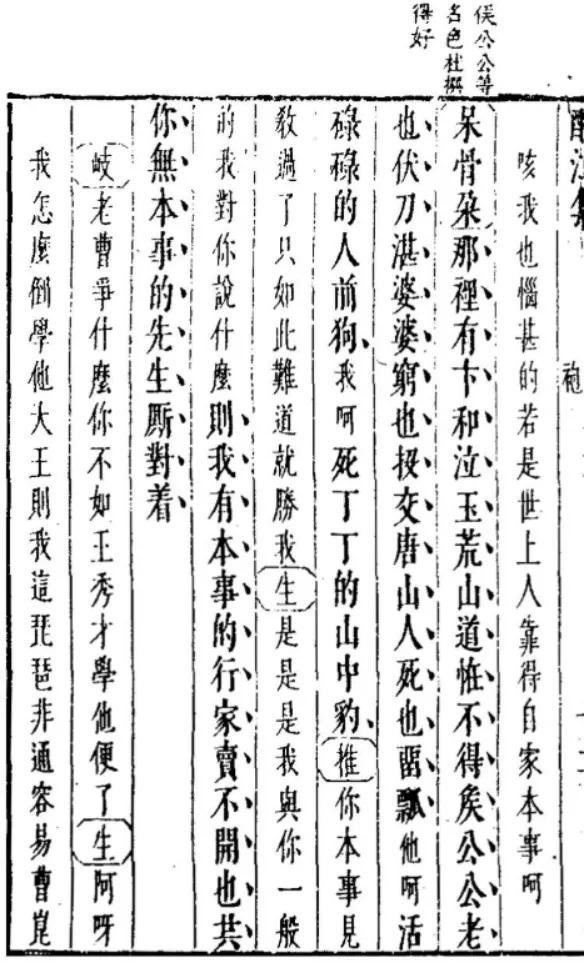 侯公公等
名色杜撰
得好
袍
咳我也惱甚的若是世上人靠得自家本事呵
呆骨朶那裡有卞和泣玉荒山道恠不得矦公公老
也伏刀湛婆婆窮也投交唐山人死也畱瓢他呵活
碌碌的人前狗我呵死丁丁的山中豹推你本事見
敎過了只如此難道就勝我生是是是我與你一般
的我對你說什麼則我有本事的行家賣不開也共
你無本事的先生厮對着
岐老曹爭什麼你不如王秀才學他便了生阿呀
我怎麼倒學他大王則我這琵琶非通容易曹崑